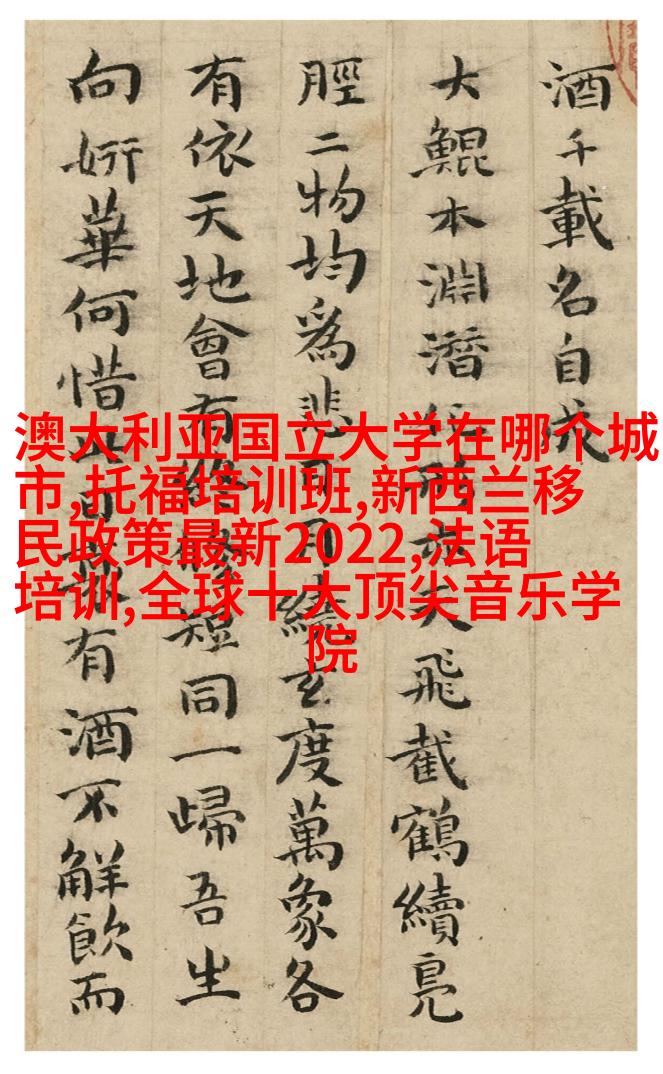 澳大利亚国立大学在哪个城
市,托福培训班,新西兰移
民政策最新2022,法语
培训,全球十大顶尖音乐学
院
酒千載名自
大鯤本淵潛天飛截鶴續鳧
脛二物均爲悲日月繞玄度萬象各
有依天地會有短同一歸吾生
向妍華何惜此有酒不觧飲而